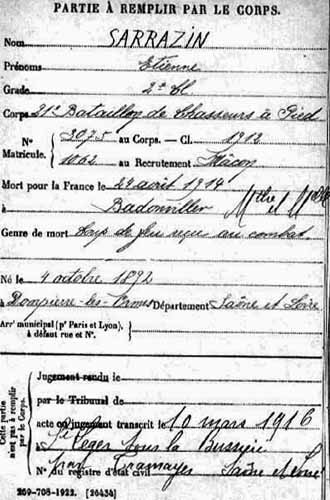 PARTIE À REMPLIR PAR LE CORPS.
Nom SARRAZIN
Prénoms Etienne
Grade 2e Cl
Corps 21e Bataillon de Chasseurs à Pied
N° Matricule. 3075 au Corps. — Cl. 1912
1062 au Recrutement Mâcon
Mort pour la France le 24 août 1914
à Badonviller Mthe et Mlle
Genre de mort Coup de feu reçu au combat
Né le 4 octobre 1892
à Dompierre-les-Ormes Département Saône et Loire
Arrt municipal (pr Paris et Lyon), à défaut rue et N°.
Cette partie n'est pas à remplir par le Corps.
Jugement rendu le
par le Tribunal de
acte ou jugement transcrit le 10 mars 1916
à St Léger sous la Bussière
par Tramayes Saône et Loire
N° du registre d'état civil
269-708-1922. [26434]